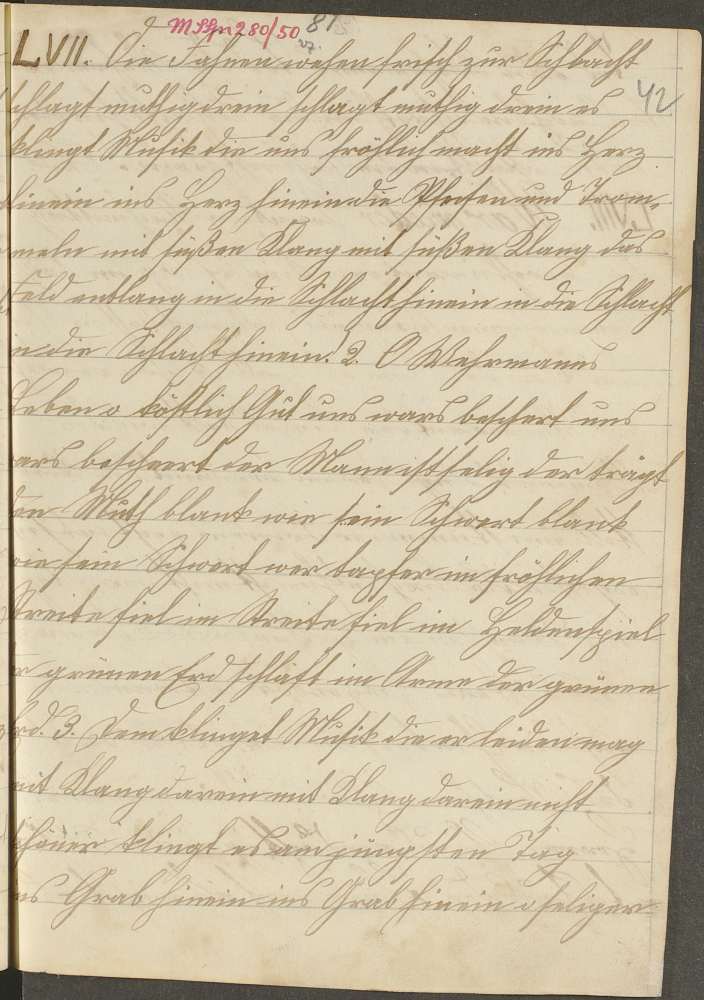 MSHn 280/50
81
42
LVII. Die Fahnen wehen frisch zur Schlacht
schlagt muthig drein schlagt muthig drein es
klingt Musik die uns fröhlich macht ins Herz
hinein ins Herz hinein die Pfeifen und Trom-
meln mit süßen Klang mit süßen Klang das
Feld entlang in die Schlacht hinein in die Schlacht
in die Schlacht hinein! 2. O Wehrmanns
Leben o köstlich Gut uns wars beschert uns
wars bescheert der Mann ist selig der trägt
den Muth blank wie sein Schwert blank
wie sein Schwert wer tapfer im fröhlichen
Streite fiel im Streite fiel im Heldenspiel
er grünen Erd schläft im Arme der grünen
Erd. 3. Dem klinget Musik die er leiden mag
mit Klang darein mit Klang darein nicht
schöner klingt es am jüngsten Tag
ins Grab hinein ins Grab hinein o seliger